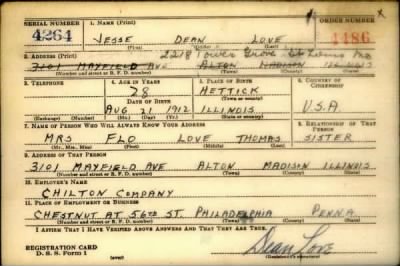 SERIAL NUMBER 1. NAME (Print) ORDER NUMBER
4264 JESSE DEAN LOVE 1486
(First) (Middle) (Last)
2. ADDRESS (Print) 2218 Tower Grove St Louis Mo
3101 MAYFIELD AVE ALTON MADISON ILLINOIS
(Number and street or R. F. D. number) (Town) (County) (State)
3. TELEPHONE 4. AGE IN YEARS 5. PLACE OF BIRTH 6. COUNTRY OF CITIZENSHIP
28 HETTICK
DATE OF BIRTH (Town or county)
AUG 21 1912 ILLINOIS U.S.A.
(Exchange) (Number) (Mo.) (Day) (Yr.) (State or country)
7. NAME OF PERSON WHO WILL ALWAYS KNOW YOUR ADDRESS 8. RELATIONSHIP OF THAT PERSON
MRS FLO LOVE THOMAS SISTER
(Mr., Mrs., Miss) (First) (Middle) (Last)
9. ADDRESS OF THAT PERSON
3101 MAYFIELD AVE ALTON MADISON ILLINOIS
(Number and street or R. F. D. number) (Town) (County) (State)
10. EMPLOYER'S NAME
CHILTON COMPANY
11. PLACE OF EMPLOYMENT OR BUSINESS
CHESTNUT AT 56TH ST. PHILADELPHIA PENNA
(Number and street or R. F. D. number) (Town) (County) (State)
I AFFIRM THAT I HAVE VERIFIED ABOVE ANSWERS AND THAT THEY ARE TRUE.
REGISTRATION CARD
D. S. S. Form 1 (over) Dean Love
(Registrant's signature)